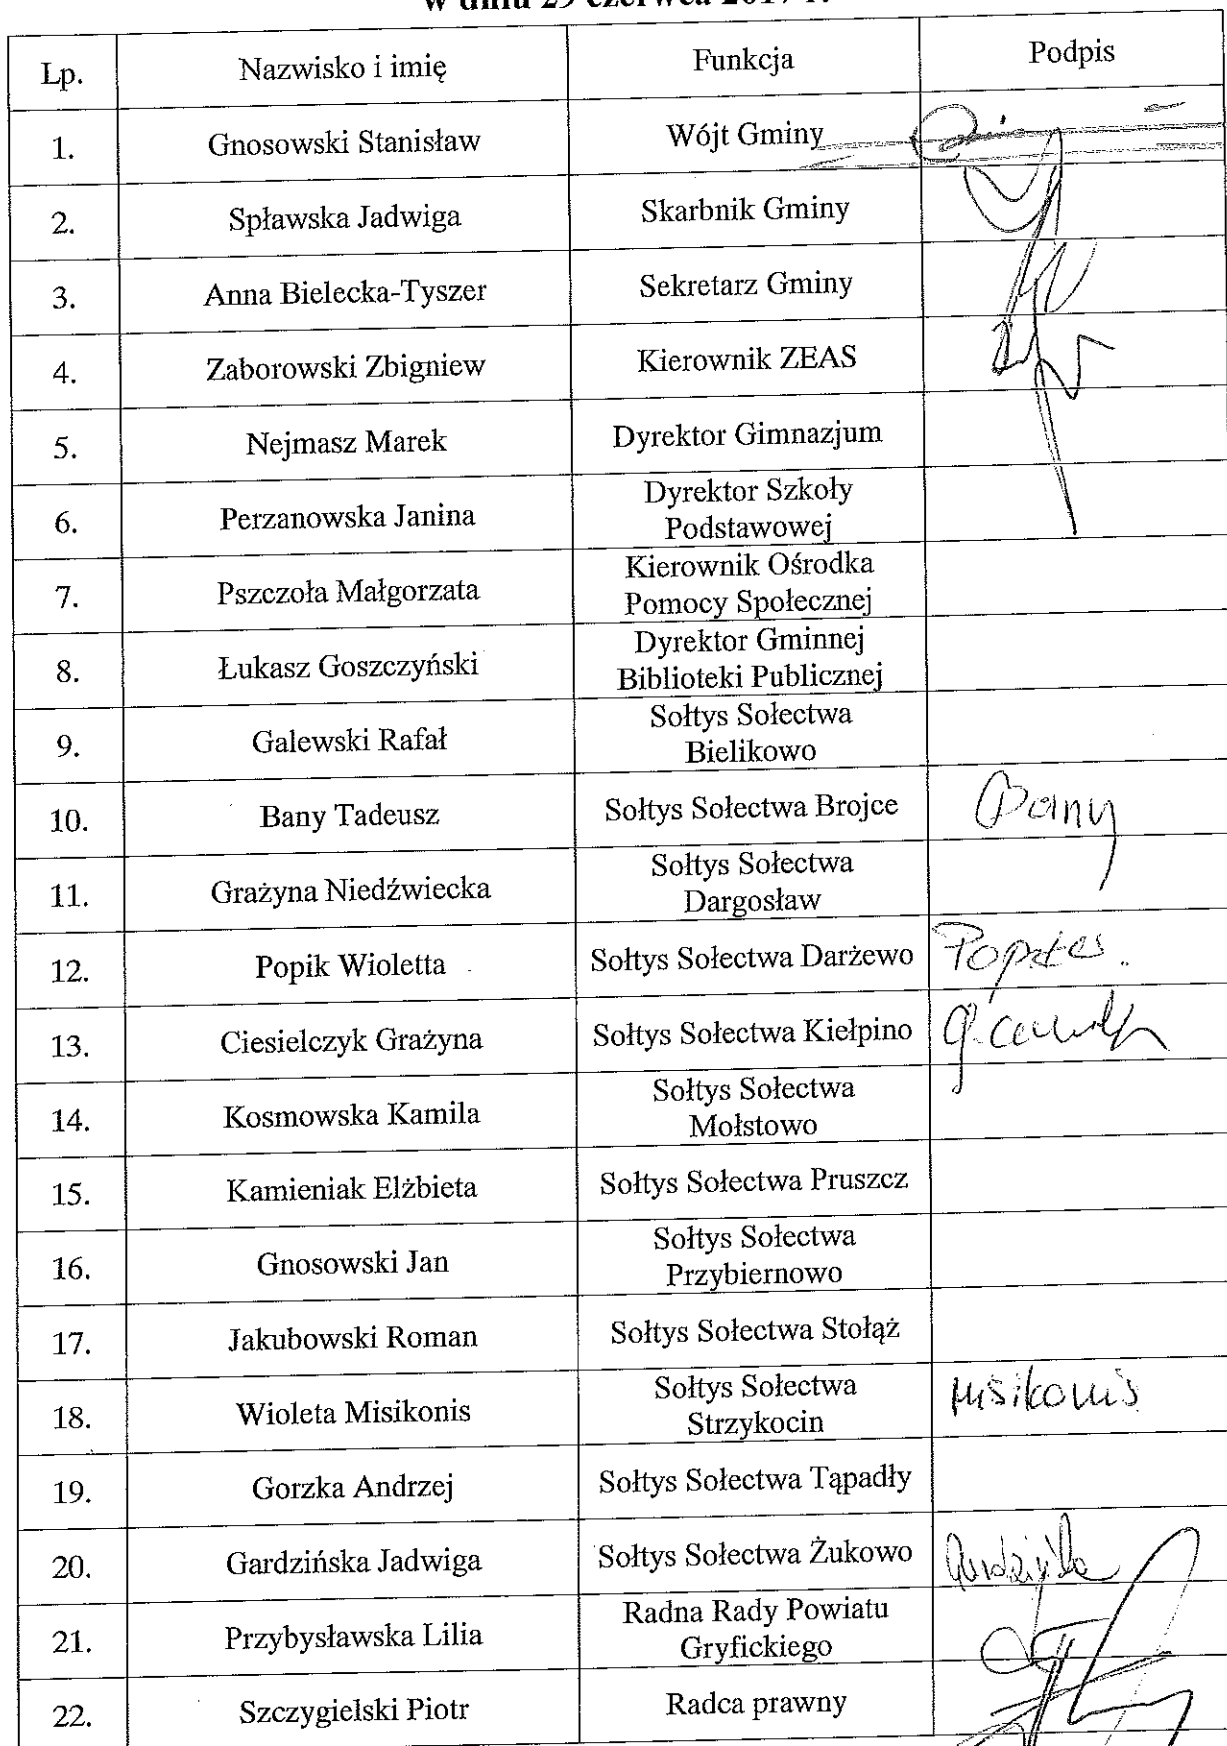 w dniu 29 czerwca 2017 r.
Lp. Nazwisko i imię Funkcja Podpis
1. Gnosowski Stanisław Wójt Gminy
2. Spławska Jadwiga Skarbnik Gminy
3. Anna Bielecka-Tyszer Sekretarz Gminy
4. Zaborowski Zbigniew Kierownik ZEAS
5. Nejmasz Marek Dyrektor Gimnazjum
6. Perzanowska Janina Dyrektor Szkoły
Podstawowej
7. Pszczoła Małgorzata Kierownik Ośrodka
Pomocy Społecznej
8. Łukasz Goszczyński Dyrektor Gminnej
Biblioteki Publicznej
9. Galewski Rafał Sołtys Sołectwa
Bielikowo
10. Bany Tadeusz Sołtys Sołectwa Brojce Bany
11. Grażyna Niedźwiecka Sołtys Sołectwa
Dargosław
12. Popik Wioletta Sołtys Sołectwa Darżewo
13. Ciesielczyk Grażyna Sołtys Sołectwa Kiełpino
14. Kosmowska Kamila Sołtys Sołectwa
Mołstowo
15. Kamieniak Elżbieta Sołtys Sołectwa Pruszcz
16. Gnosowski Jan Sołtys Sołectwa
Przybiernowo
17. Jakubowski Roman Sołtys Sołectwa Stołąż
18. Wioleta Misikonis Sołtys Sołectwa
Strzykocin Misikonis
19. Gorzka Andrzej Sołtys Sołectwa Tąpadły
20. Gardzińska Jadwiga Sołtys Sołectwa Żukowo
21. Przybysławska Lilia Radna Rady Powiatu
Gryfickiego
22. Szczygielski Piotr Radca prawny